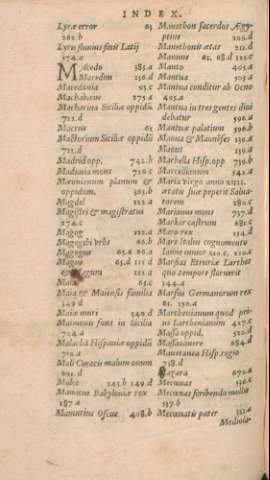 INDEX.
Lyræ error 61
262.b
Lyris fluuius fuit Latij
174.a
Macedo 385.a
Macedim 256.d
Macedonia 95.c
Machabæus 273.a
Macharina Siciliæ oppidũ
712.d
Macrus 61
Mactorium Siciliæ oppidũ
712.d
Madrid opp. 742.b
Maduaia mons 726.c
Mæoniorum planum &
oppidum. 365.b
Magdal 122.a
Magistri & magistratus
274.c
Magog 122.a
Magog vrbs 66.b
Magogus 65.a 66.a
Magus 65.d 111.d
& Magum 122.a
Maia 65.c
Maia & Maiensis familia
149.d
Maiæ muri 149.d
Maimonis fons in Sicilia
724.a
Malacha Hispaniæ oppidũ
752.a
Mali Curacis malum ouum
601.d
Maloc 145.b 149.d
Mamitus Babyloniæ rex
187.a
Mamurius Oscus 408.b
Manethon sacerdos Ægy-
ptius 205.d
Manethonis ætas 212.d
Mannus 62, 68.d 125.c
Manto 405.a
Mantua 305.c
Mantua conditur ab Ocno
405.a
Mantua in tres gentes diui
debatur 596.a
Mantuæ palatium 596.b
Manua & Maunifes 139.a
Matuus 150.d
Marbella Hisp. opp 750.b
Marcellianum 542.a
Maria virgo anno XIIII.
ætatis suæ peperit Salua-
torem 280.c
Marianus mons 737.d
Marker castrum 685.c
Maro rex 154.d
Mars Italus cognomento
Ianus iunior 210.c 210.a
Marsias Etruriæ Larthes
quo tempore floruerit
144.a
Marsus Germanorum rex
81. 150.a
Marthianum quod pri-
us Larthenianum 427.c
Massa oppid. 522.d
Massauuere 684.d
Mauritania Hisp. regio
738.d
Mazara 671.a
Mecœnas 536.a
Mecœnas scribendo mollis
517.b
Mecœnatis pater 352.a
Mediola-